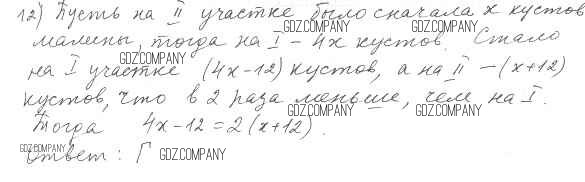 12) Пусть на II участке было сначала x кустов
малины, тогда на I - 4x кустов. Стало
на I участке (4x-12) кустов, а на II - (x+12)
кустов, что в 2 раза меньше, чем на I.
Тогда 4x-12=2(x+12).
Ответ: Г
GDZ.COMPANY
GDZ.COMPANY
GDZ.COMPANY
GDZ.COMPANY
GDZ.COMPANY
GDZ.COMPANY
GDZ.COMPANY